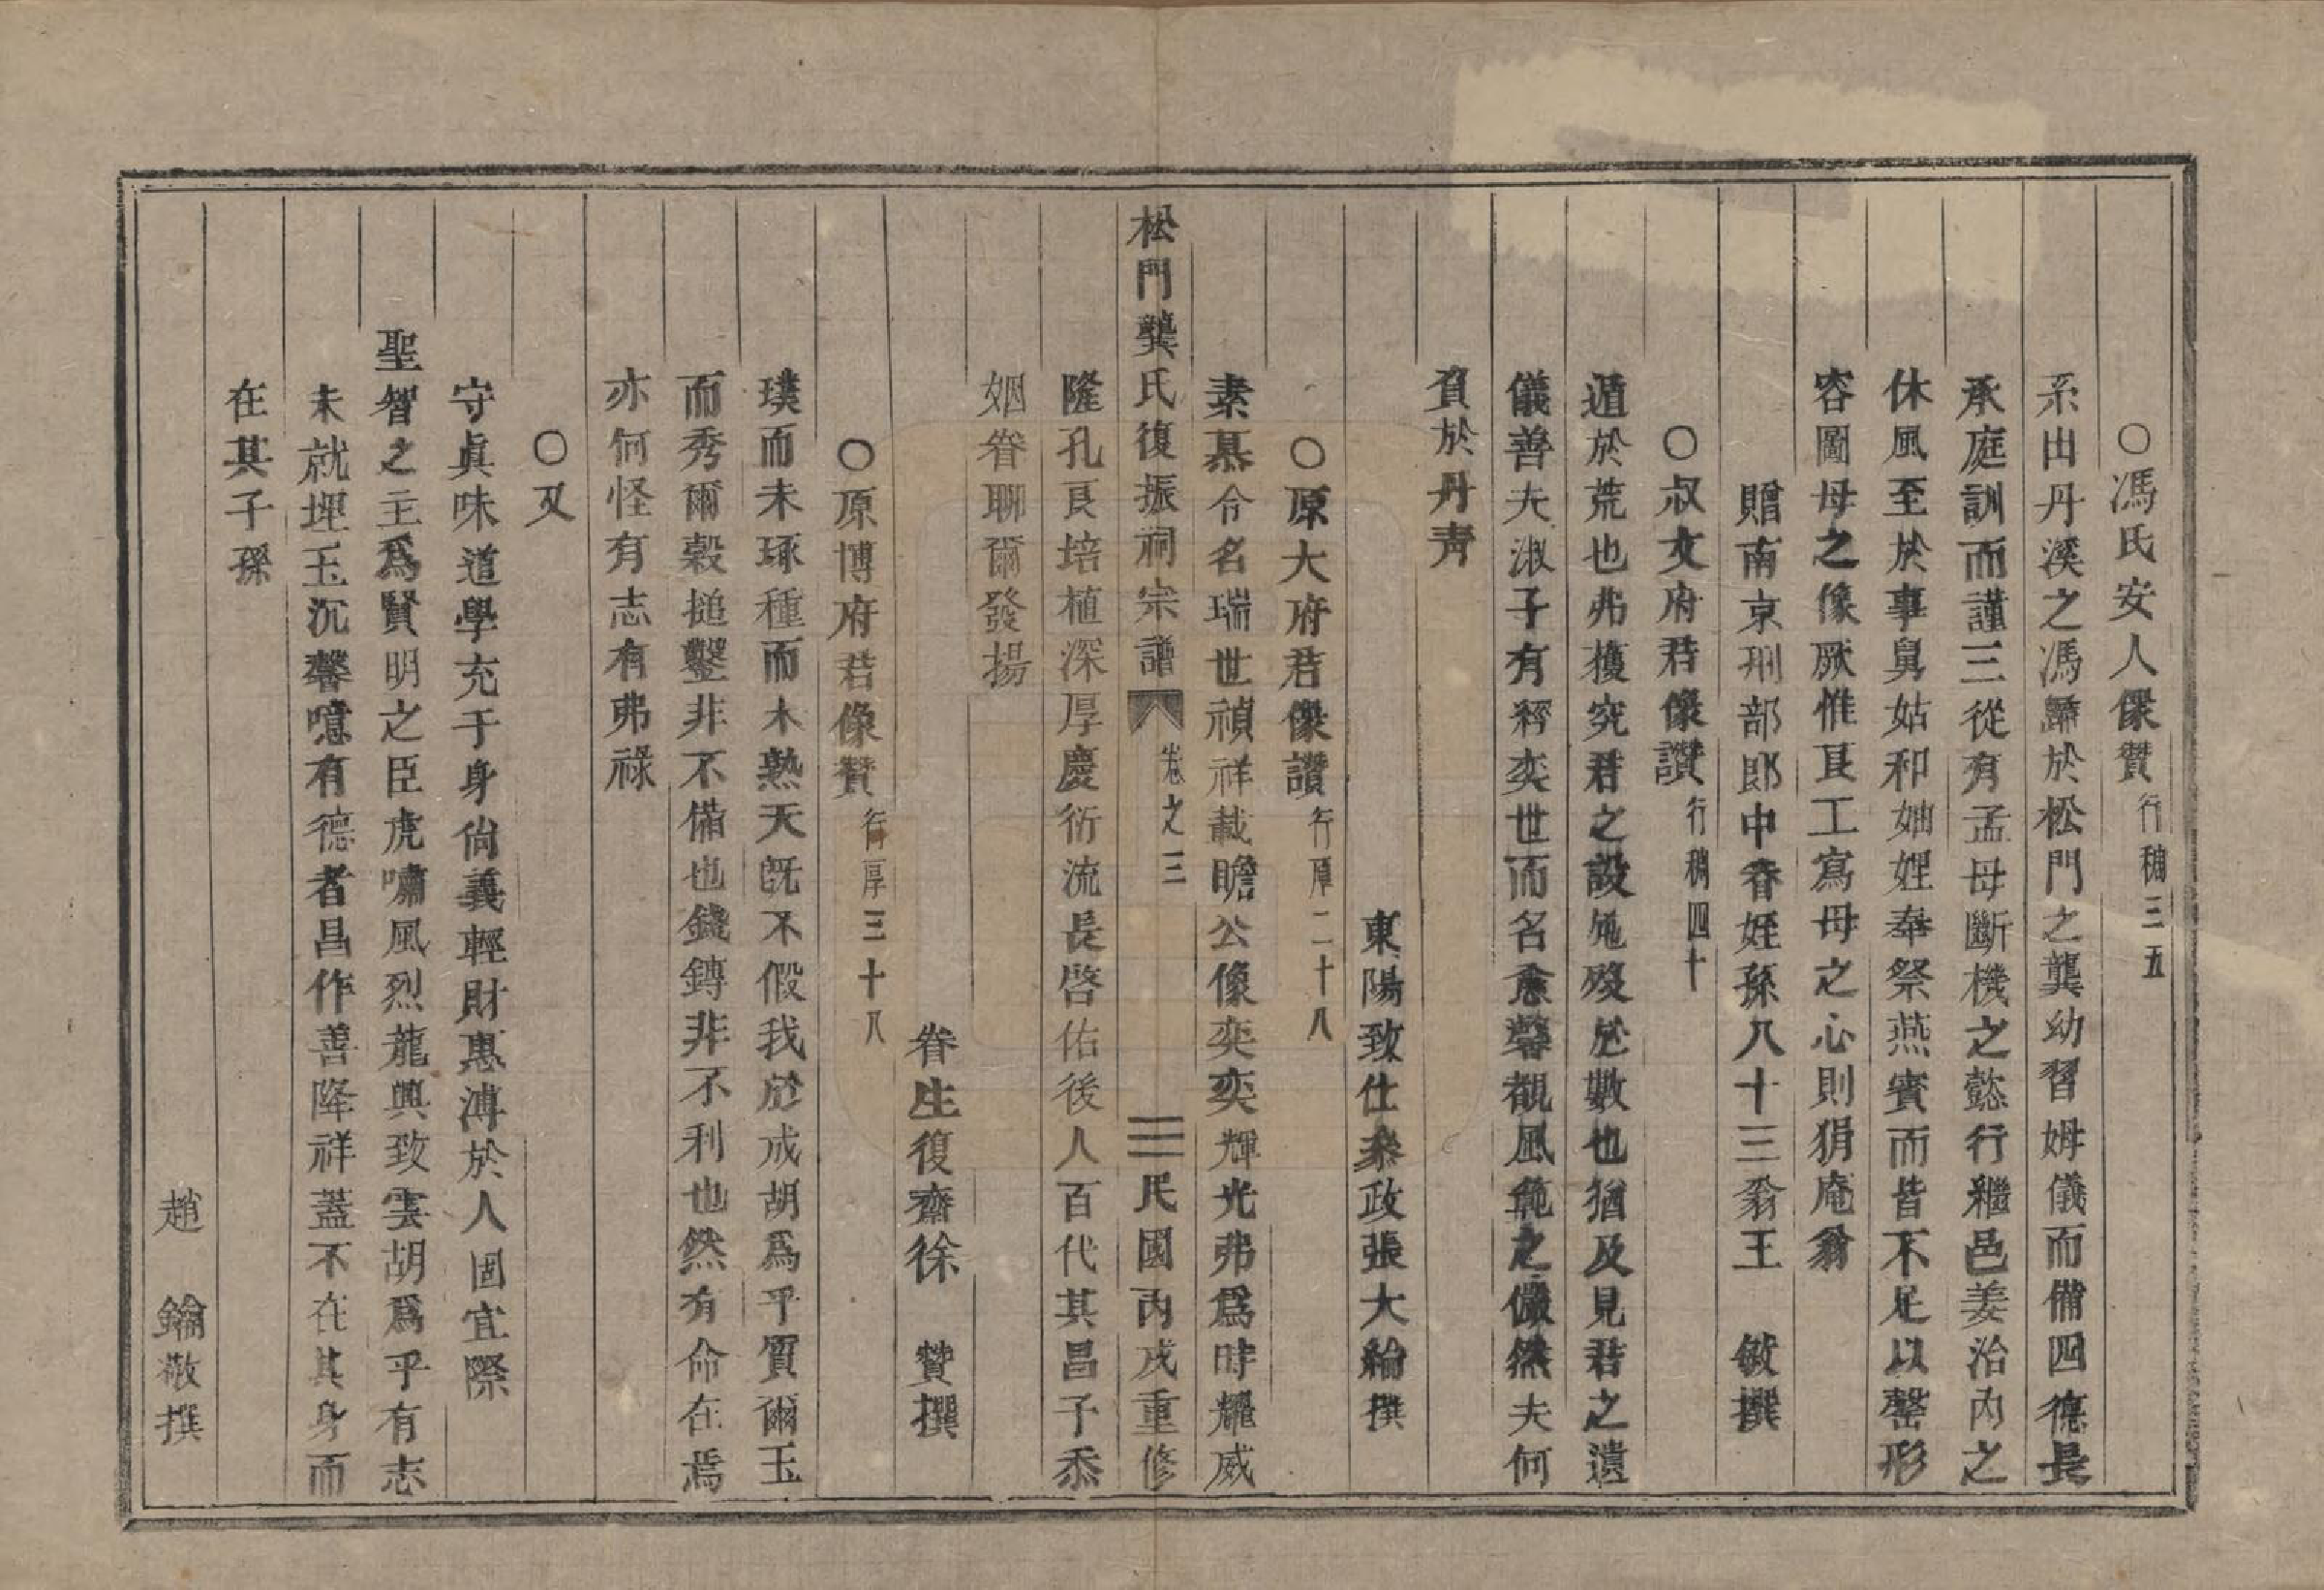 ○馮氏安人像贊行稱三五
系出丹溪之馮歸於松門之龔幼習姆儀而備四德長
承庭訓而謹三從有孟母斷機之懿行繼邑姜治內之
休風至於事舅姑和妯娌奉祭燕賓而皆不足以罄形
容圖母之像厥惟良工寫母之心則狷庵翁
贈南京刑部郎中眷姪孫八十三翁王 敏撰
○叔文府君像讚行稱四十
遁於荒也弗獲究君之設施歿於數也猶及見君之遺
儀善夫淑子有繹奕世而名愈馨覩風範之儼然夫何
負於丹靑
東陽致仕叅政張大綸撰
○原大府君像讚行厚二十八
素慕令名瑞世禎祥載瞻公像奕奕輝光弗爲時耀威
隆孔艮培植深厚慶衍流長啓佑後人百代其昌子忝
姻眷聊爾發揚
松門龔氏復振祠宗譜 卷之三 三 民國丙戌重修
眷生復齋徐 贊撰
○原博府君像贊行厚三十八
璞而未琢種而未熟天旣不假我於成胡爲乎質爾玉
而秀爾穀搥鑿非不備也錢鎛非不利也然有命在焉
亦何怪有志有弗祿
○又
守眞味道學充于身尙義輕財惠溥於人固宜際
聖智之主爲賢明之臣虎嘯風烈龍興致雲胡爲乎有志
未就埋玉沉馨噫有德者昌作善降祥蓋不在其身而
在其子孫
趙 錀敬撰